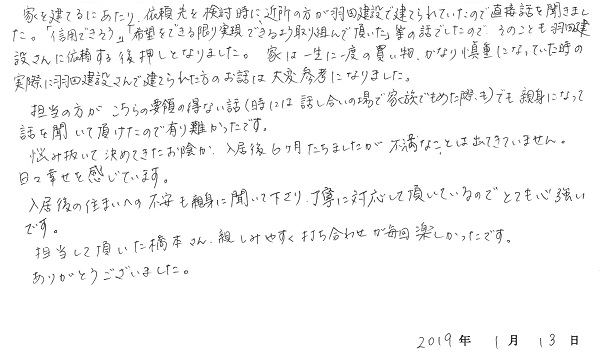 家を建てるにあたり、依頼先を検討時に、近所の方が羽田建設で建てられていたので直接話を聞きまし
た。「信用できそう」「希望をできる限り実現できるよう取り組んで頂いた」等の話でしたので、そのことも羽田建
設さんに依頼する後押しとなりました。家は一生に一度の買い物、かなり慎重になっていた時の
実際に羽田建設さんで建てられた方のお話は大変参考になりました。
担当の方がこちらの要領の得ない話(時には話し合いの場で家族でもめた際も)でも親身になって
話を聞いて頂けたので有り難かったです。
悩み抜いて決めてきたお陰か、入居後6ヶ月たちましたが不満なことは出てきていません。
日々幸せを感じています。
入居後の住まいへの不安も親身に聞いて下さり、丁寧に対応して頂いているのでとても心強い
です。
担当して頂いた橋本さん、親しみやすく打ち合わせが毎回楽しかったです。
ありがとうございました。
2019年 1月 13日